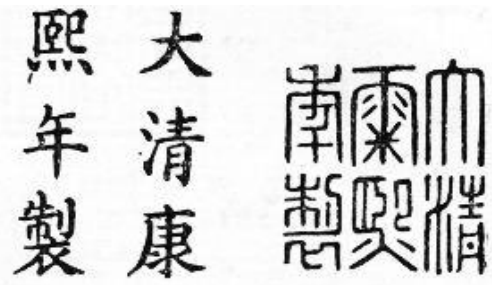 大清
康熙
年製
大清康
熙年製